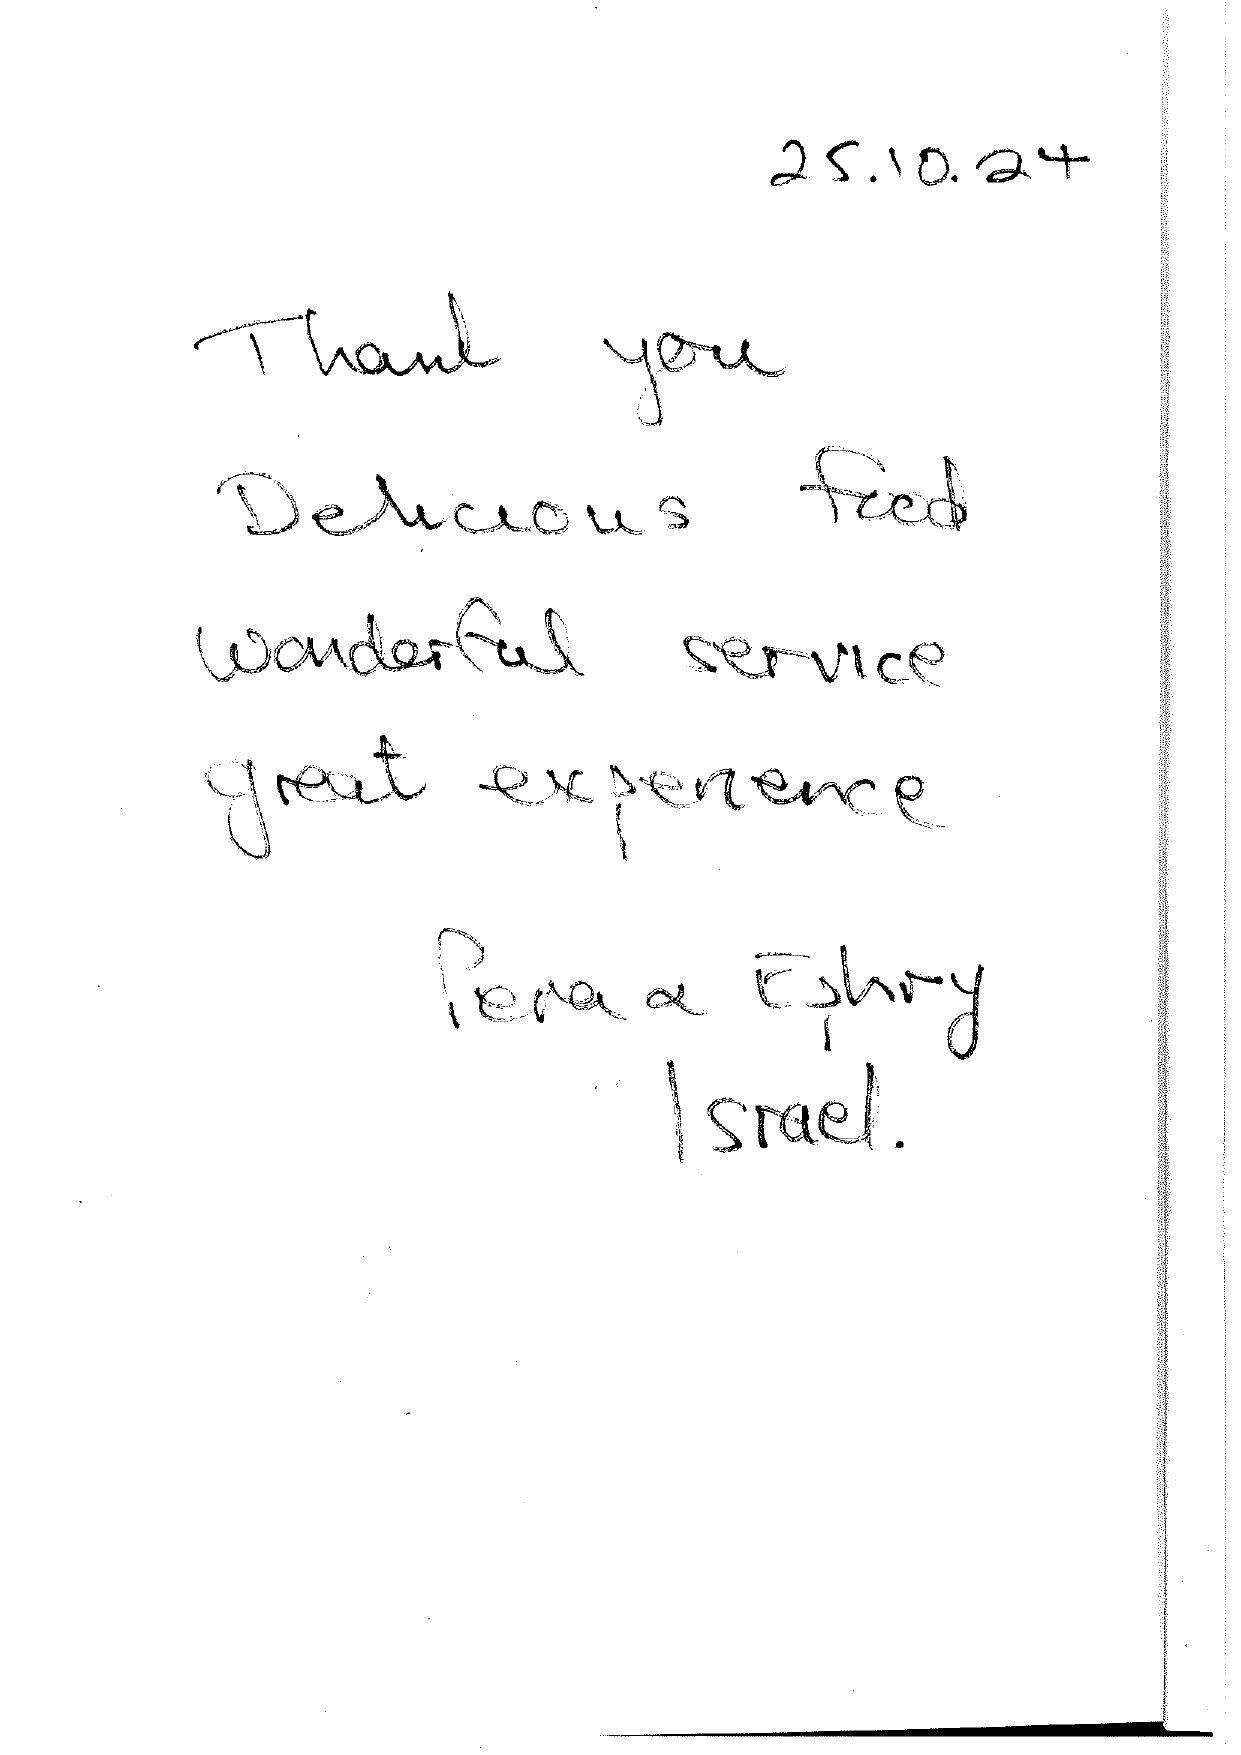 25.10.24
Thank you
Delicious food
wonderful service
great experience
&
Israel.